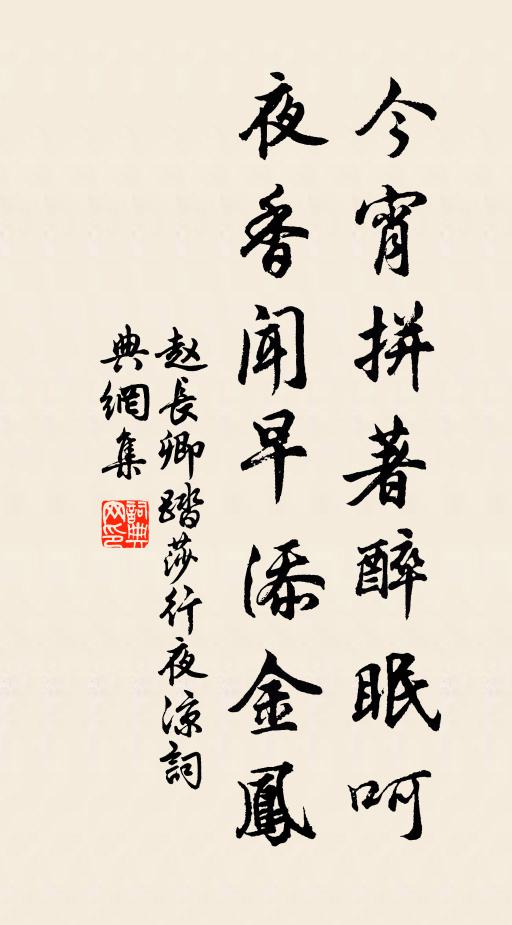 今宵拼著醉眠呵
夜香聞早添金鳳
赵長卿踏莎行夜涼詞
典網集
詞典
网印